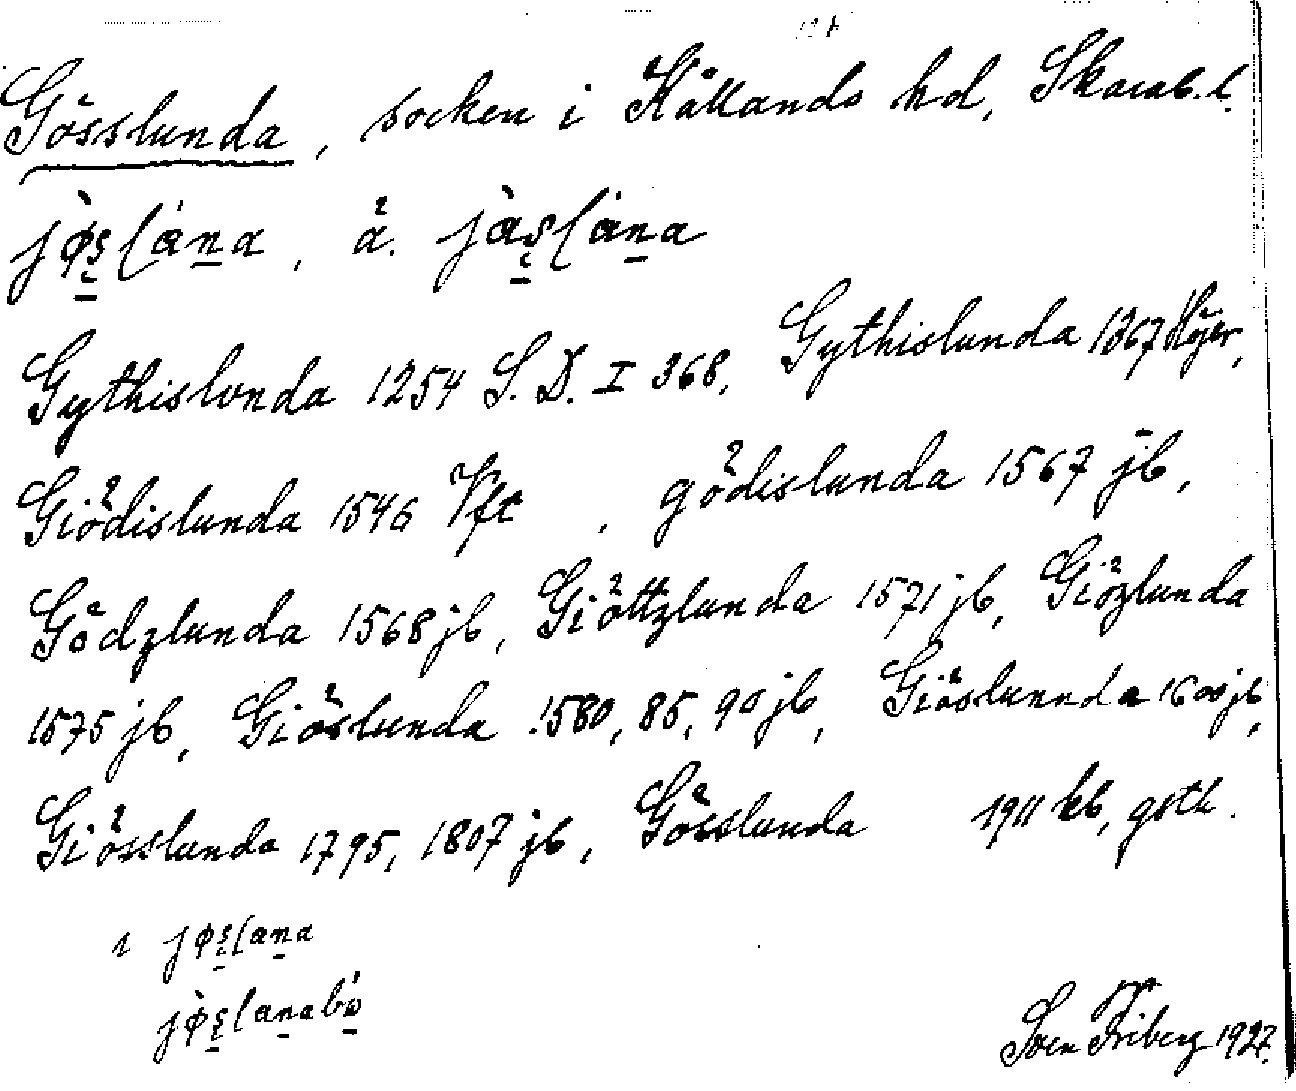 Gösslunda, socken i Kållands hd, Skarab. l.
jø̀slána, ä. jàslána
Gythislvnda 1254 S. D. I 368, Gythislunda 1367 Höjer,
Giödislunda 1546 Vft, gödislunda 1567 jb,
Gödzlunda 1568 jb, Giöttzlunda 1571 jb, Giözlunda
1575 jb, Giöslunda 1580, 85, 90 jb, Giöslunnda 1600 jb,
Giösslunda 1795, 1807 jb, Gösslunda 1911 kb, gstk.
i jøslana
jø̀slanabó
Sven Friberg 1927.